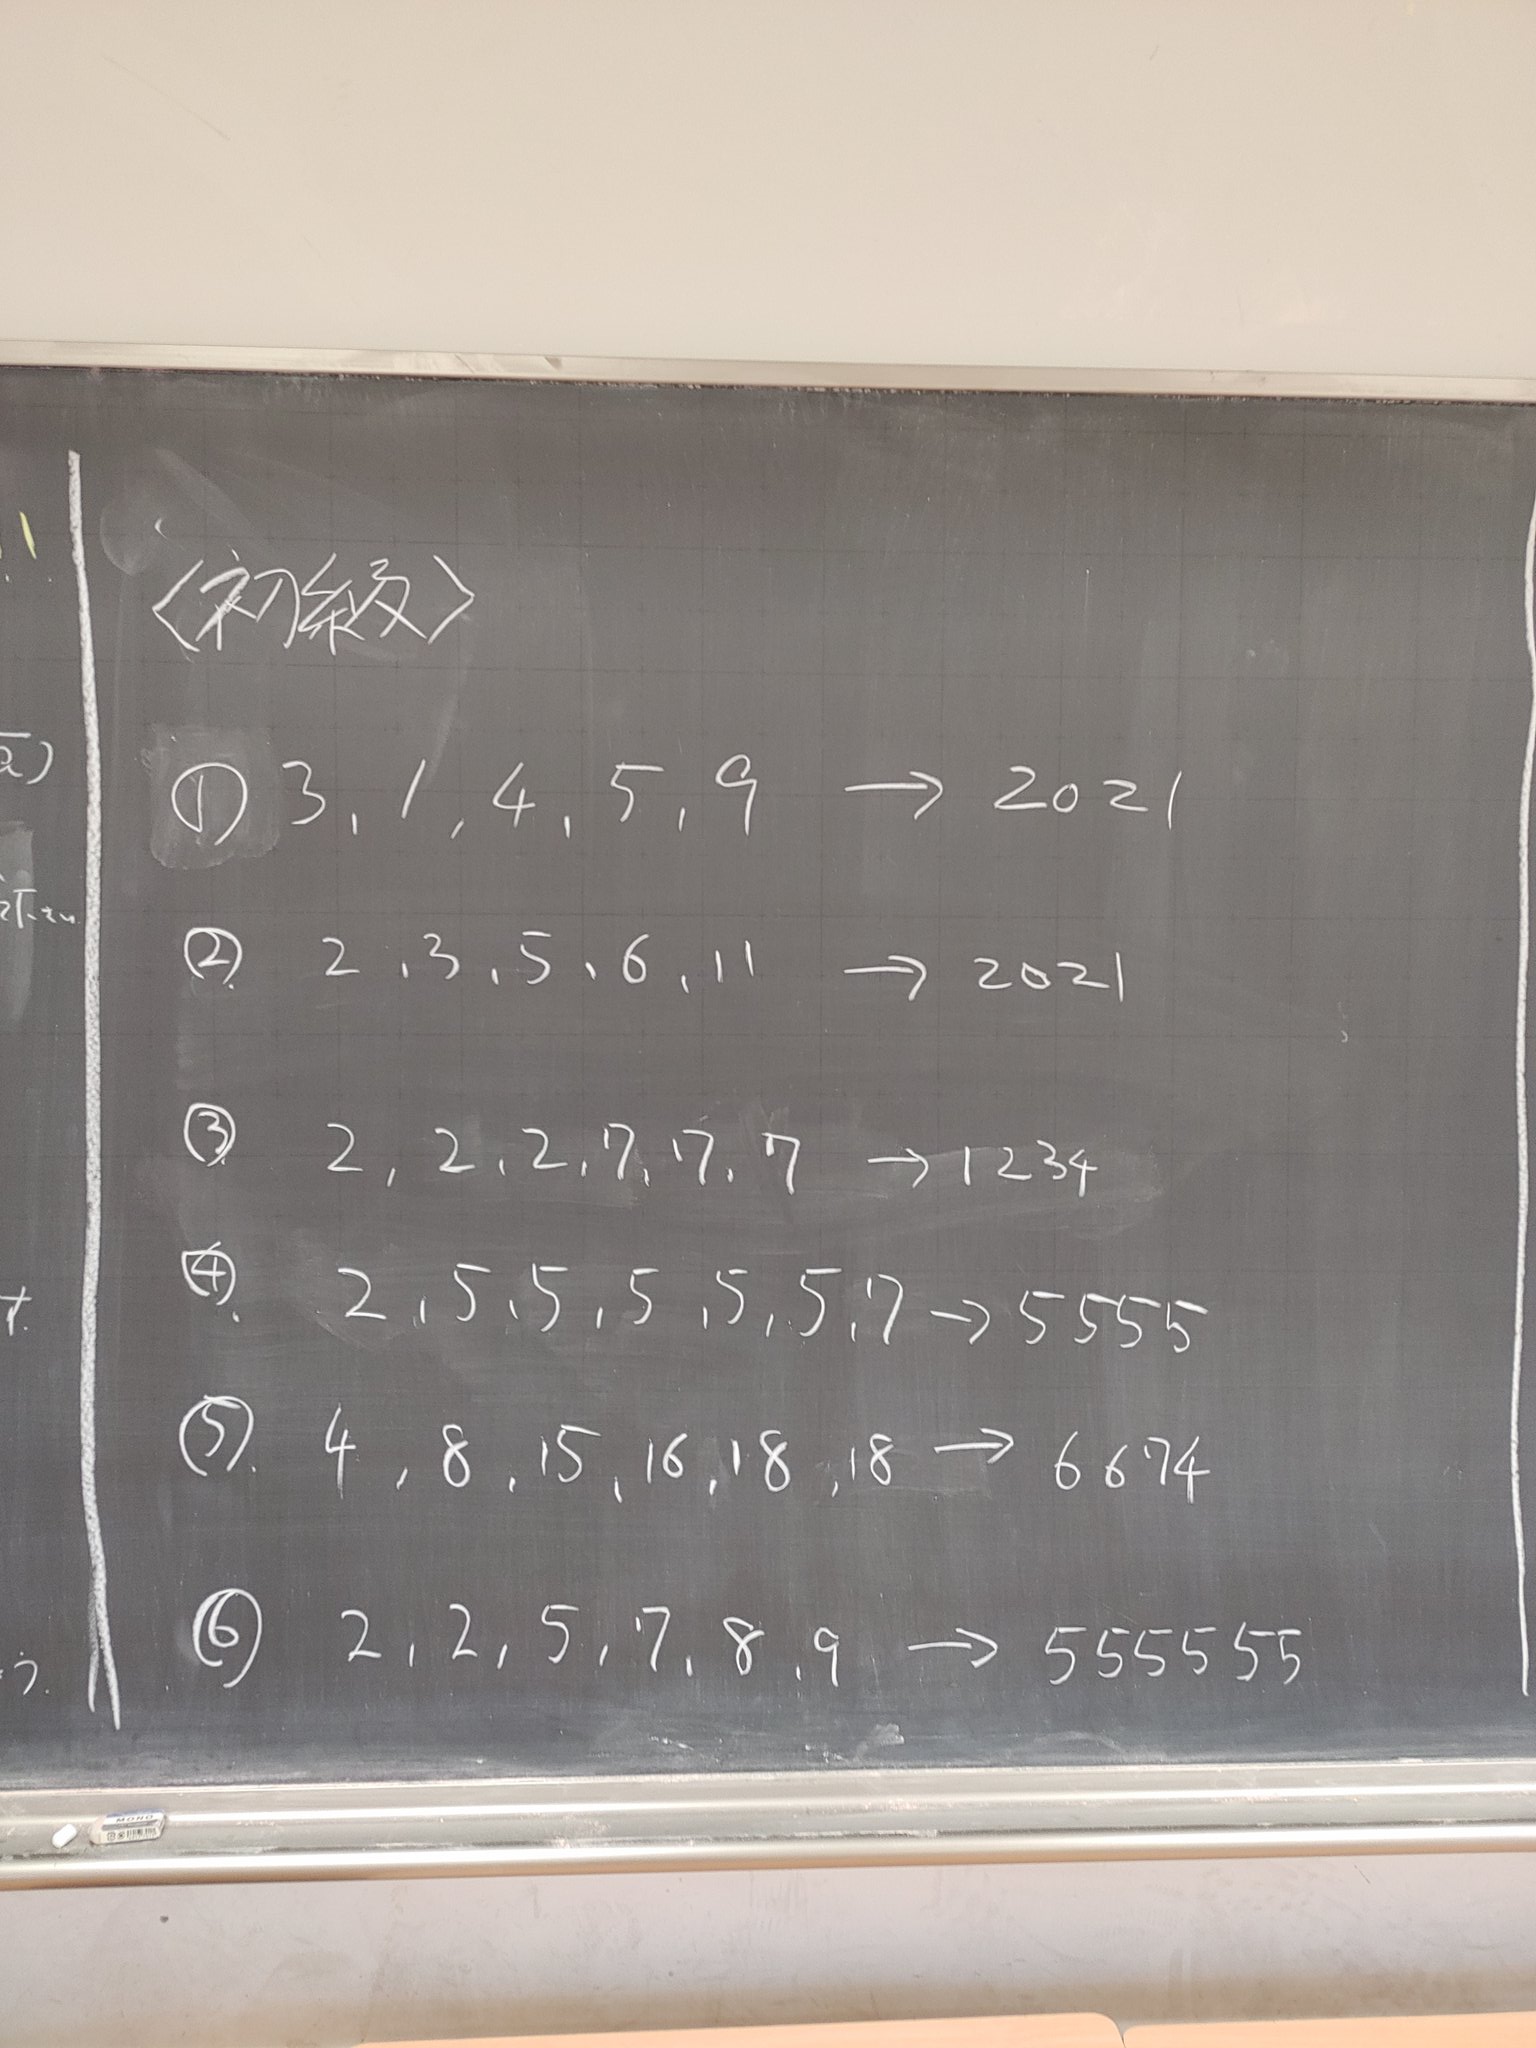 〈初級〉
① 3, 1, 4, 5, 9 → 2021
② 2, 3, 5, 6, 11 → 2021
③ 2, 2, 2, 7, 7, 7 → 1234
④ 2, 5, 5, 5, 5, 5, 7 → 5555
⑤ 4, 8, 15, 16, 18, 18 → 6674
⑥ 2, 2, 5, 7, 8, 9 → 555555
MONO